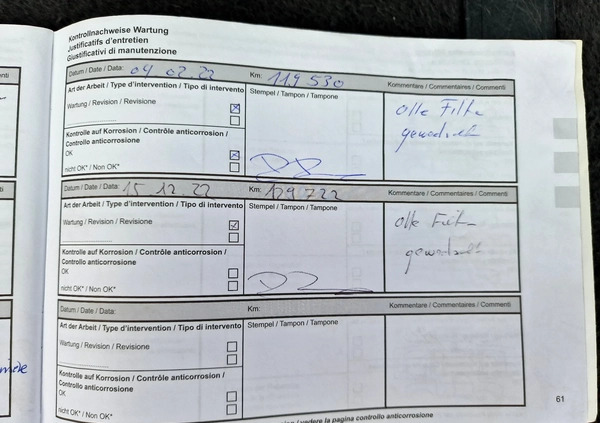 Kontrollnachweise Wartung
Justificatifs d'entretien
Giustificativi di manutenzione
Datum / Date / Data: 09 02.22 Km: 119 530 Kommentare / Commentaires / Commenti
Art der Arbeit / Type d'intervention / Tipo di intervento Stempel / Tampon / Tampone alle Filter
Wartung / Revision / Revisione gewechselt
Kontrolle auf Korrosion / Contrôle anticorrosion /
Controllo anticorrosione
OK
nicht OK* / Non OK*
Datum / Date / Data: 15 12.22 Km: 129722 Kommentare / Commentaires / Commenti
Art der Arbeit / Type d'intervention / Tipo di intervento Stempel / Tampon / Tampone alle Filter
Wartung / Revision / Revisione gewechselt
Kontrolle auf Korrosion / Contrôle anticorrosion /
Controllo anticorrosione
OK
nicht OK* / Non OK*
Datum / Date / Data: Km: Kommentare / Commentaires / Commenti
Art der Arbeit / Type d'intervention / Tipo di intervento Stempel / Tampon / Tampone
Wartung / Revision / Revisione
Kontrolle auf Korrosion / Contrôle anticorrosion /
Controllo anticorrosione
OK
nicht OK* / Non OK*
61
/ vedere la pagina controllo anticorrosione